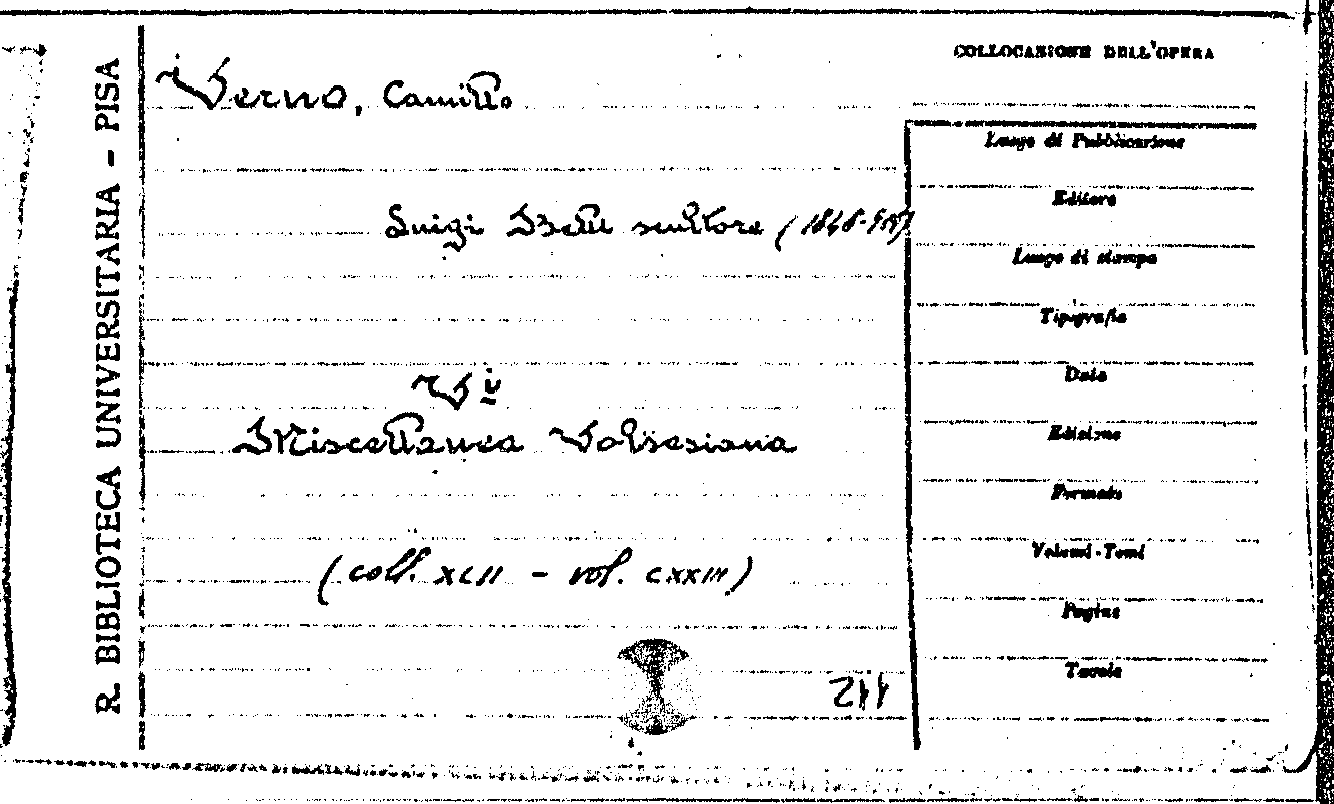 R. BIBLIOTECA UNIVERSITARIA - PISA
Verno, Camillo
Luigi Belli scultore
Miscellanea Valsesiana
(coll. XLII - vol. CXXIII)
COLLOCAZIONE DELL'OPERA
Luogo di Pubblicazione
Editore
Luogo di stampa
Tipografia
Data
Edizione
Formato
Volumi-Tomi
Pagine
Tavole